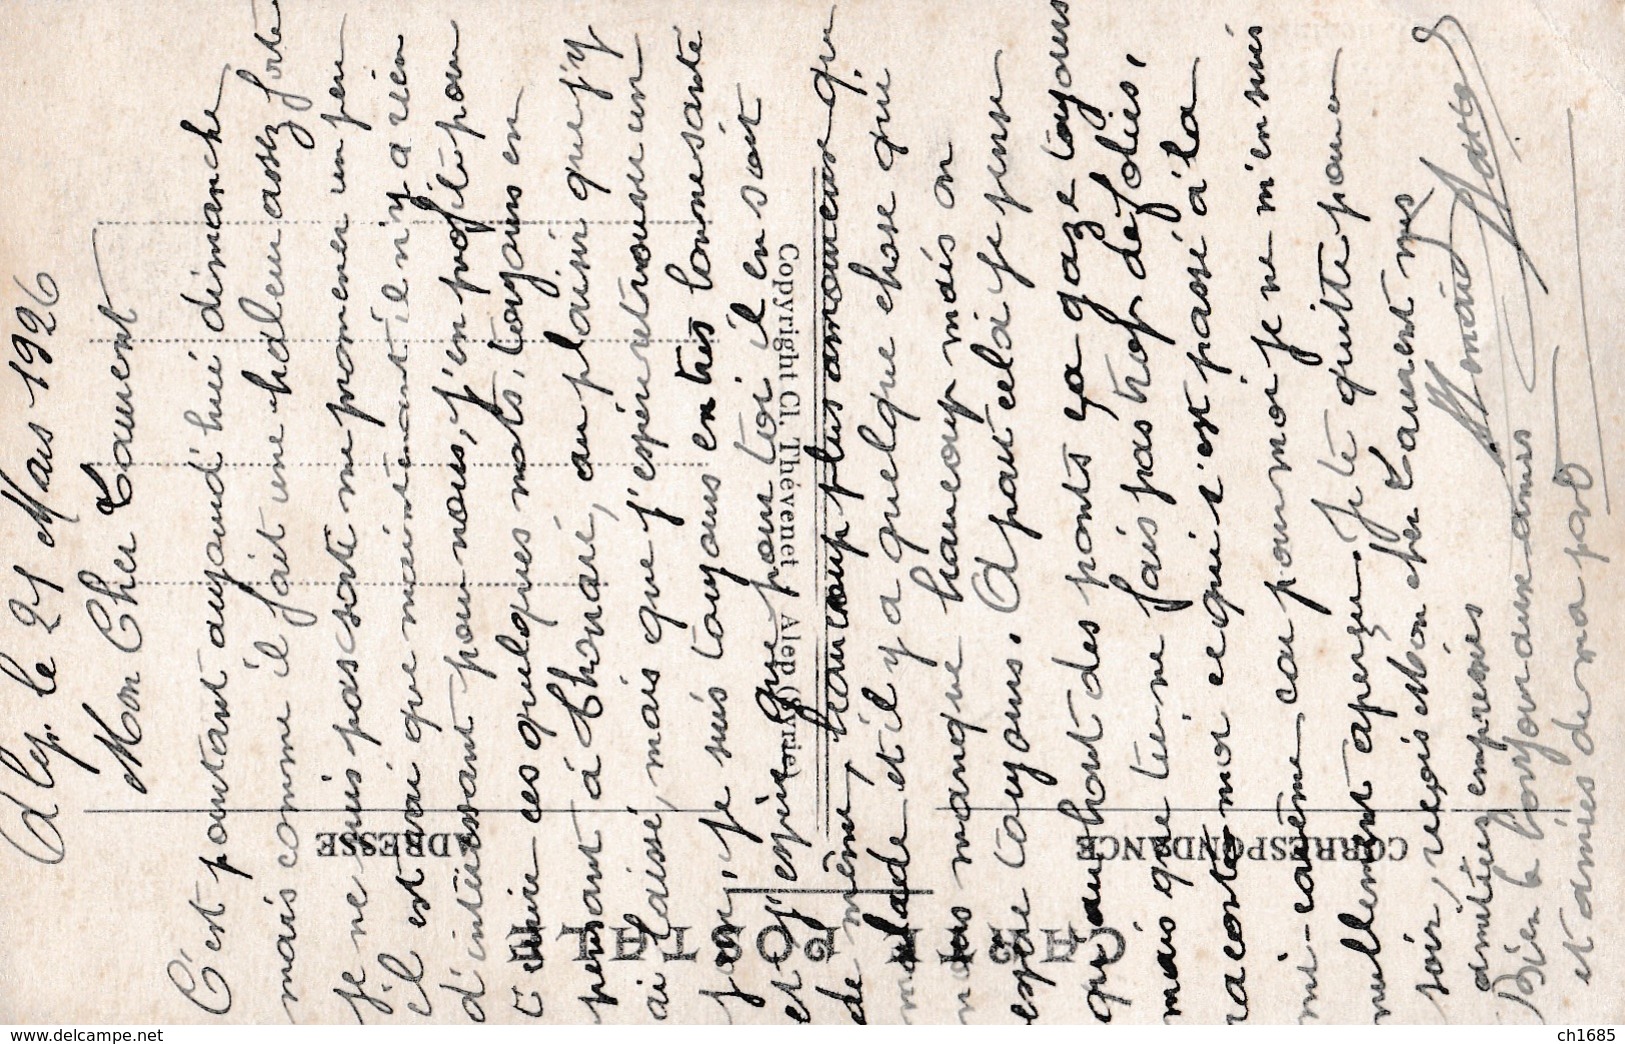 Alep. le 21 Mars 1926
Mon Cher Laurent
C'est pourtant aujourd'hui dimanche
mais comme il fait une haleur assez forte
je ne suis pas sorti me promener un peu
il est vrai que maintenant il n'y a rien
d'intéressant pour nous, j'en profite pour
t'écrire ces quelques mots, toujours en
pensant à Thouaré, au plaisir que j'y
ai laissé, mais que j'espère retrouver un
jour, je suis toujours en très bonne santé
et j'espère que pour toi il en soit
de même, beaucoup plus amoureux que
malade et il y a quelque chose qui
nous manque beaucoup mais on
espère toujours. A part cela je pense
qu'au bout des ponts ça gaze toujours
mais que tu ne fais pas trop de folies,
raconte moi ce qui s'est passé à la
mi-carême car pour moi je ne m'en suis
nullement aperçu. Je te quitte pour ce
soir, reçois Mon cher Laurent mes
amitiés empressées
Bien le bonjour aux amis
et amies de ma part
CARTE POSTALE
CORRESPONDANCE
ADRESSE
Copyright Cl. Thévenet Alep (Syrie)
www.delcampe.net
ch1685